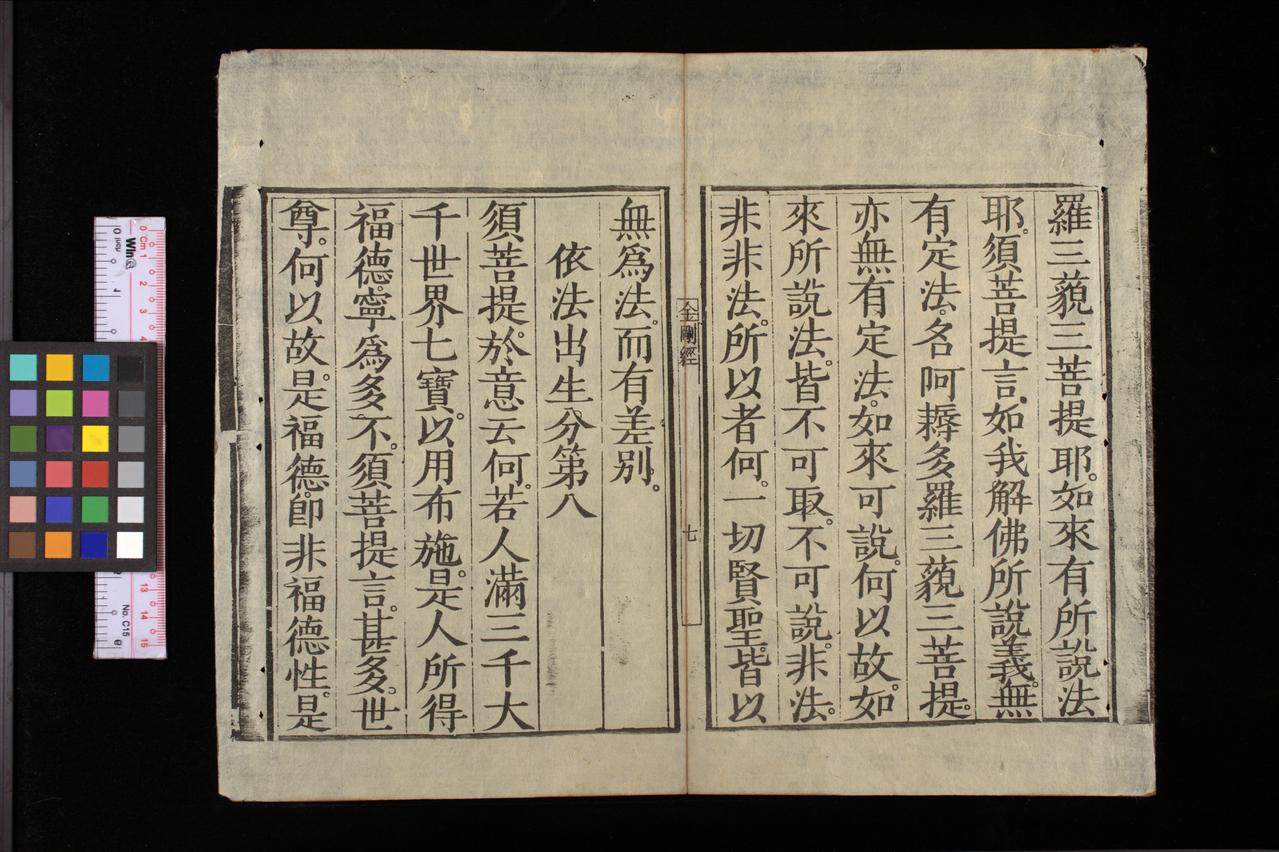 羅三藐三菩提耶。如來有所說法
耶。須菩提言。如我解佛所說義。無
有定法。名阿耨多羅三藐三菩提。
亦無有定法。如來可說。何以故。如
來所說法。皆不可取。不可說。非法。
非非法。所以者何。一切賢聖。皆以
金剛經
七
無爲法。而有差別。
依法出生分第八
須菩提。於意云何。若人滿三千大
千世界七寶。以用布施。是人所得
福德。寧爲多不。須菩提言。甚多。世
尊。何以故。是福德。卽非福德性。是
0 Cm 1 2 3 4
13 14 15
0 Inch 1
6
No. C15